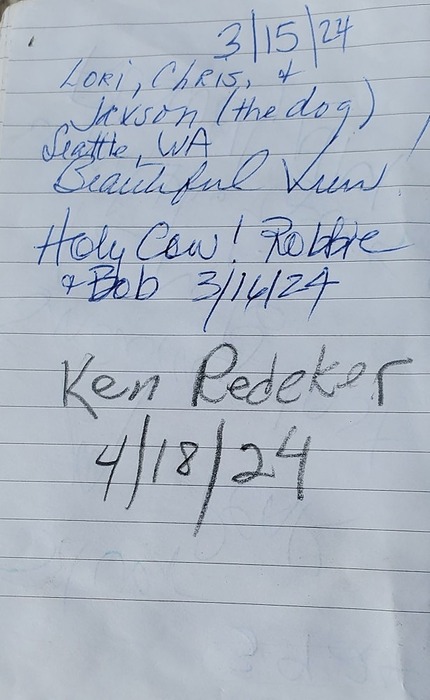 3/15/24
Lori, Chris, &
Jaxson (the dog)
Seattle, WA
Beautiful View
Holy Cow! Robbie
& Bob 3/16/24
Ken Redeker
4/18/24